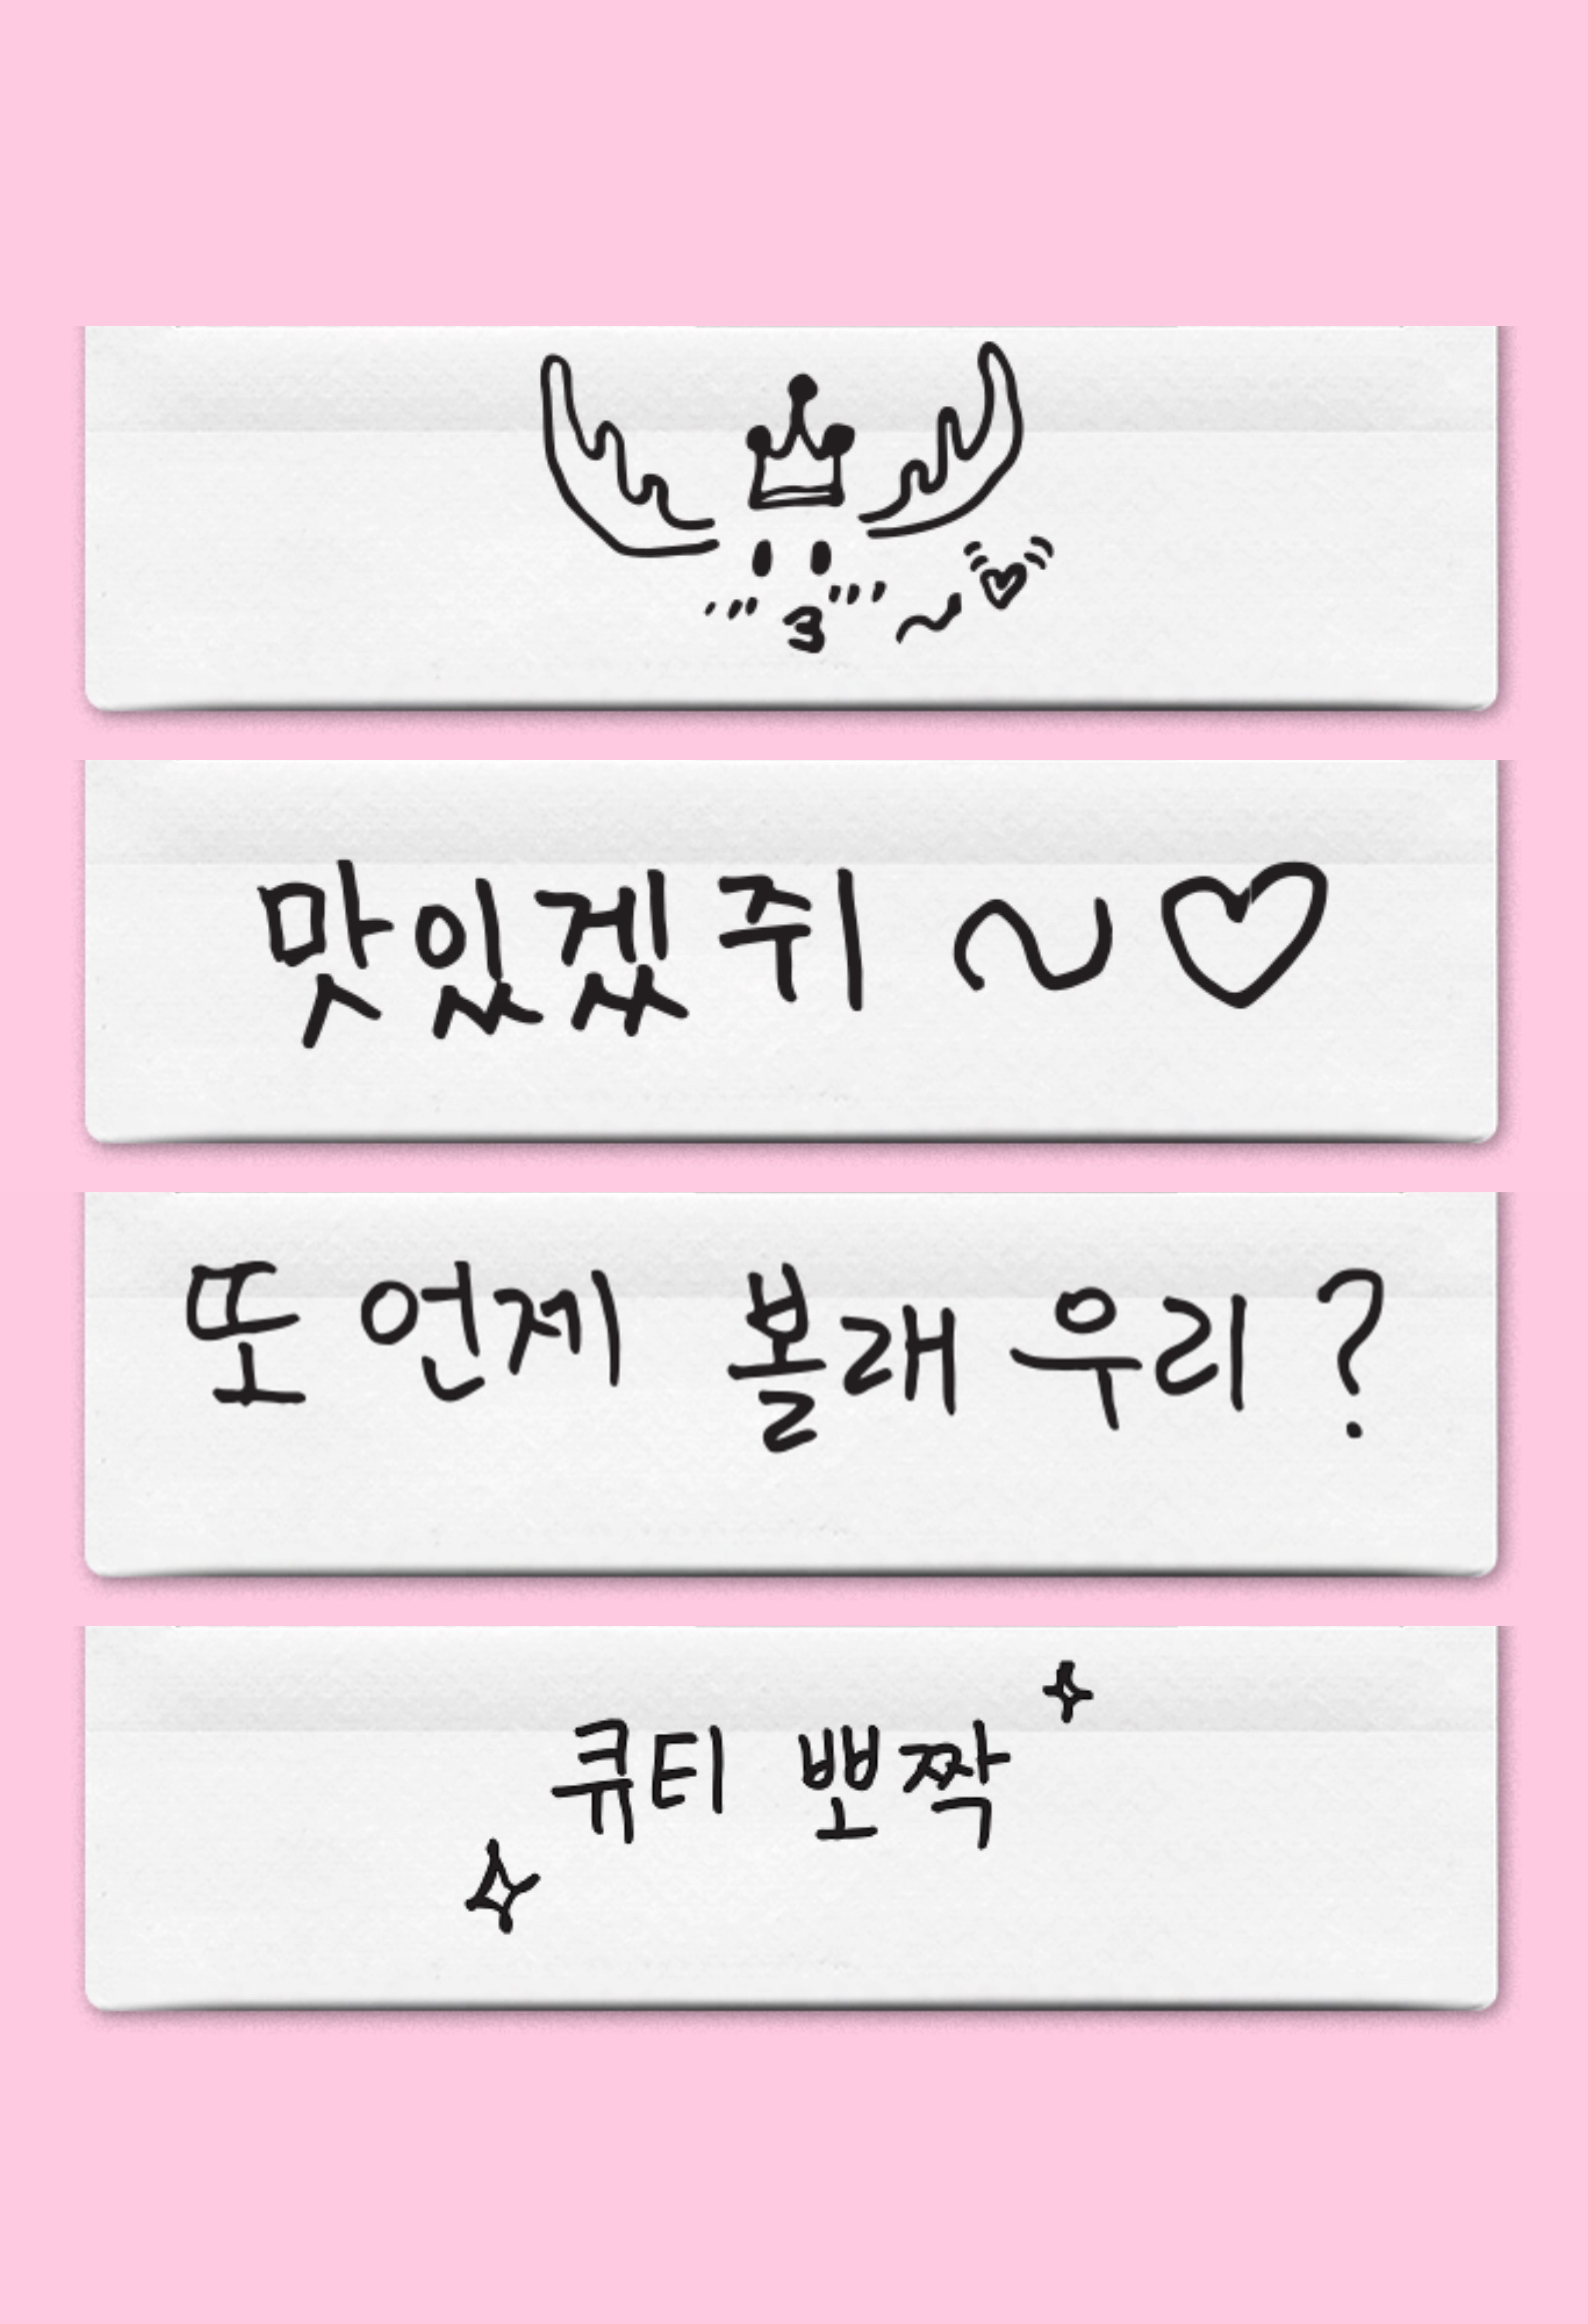 맛있겠쥐~♡
또 언제 볼래 우리?
큐티 뽀짝